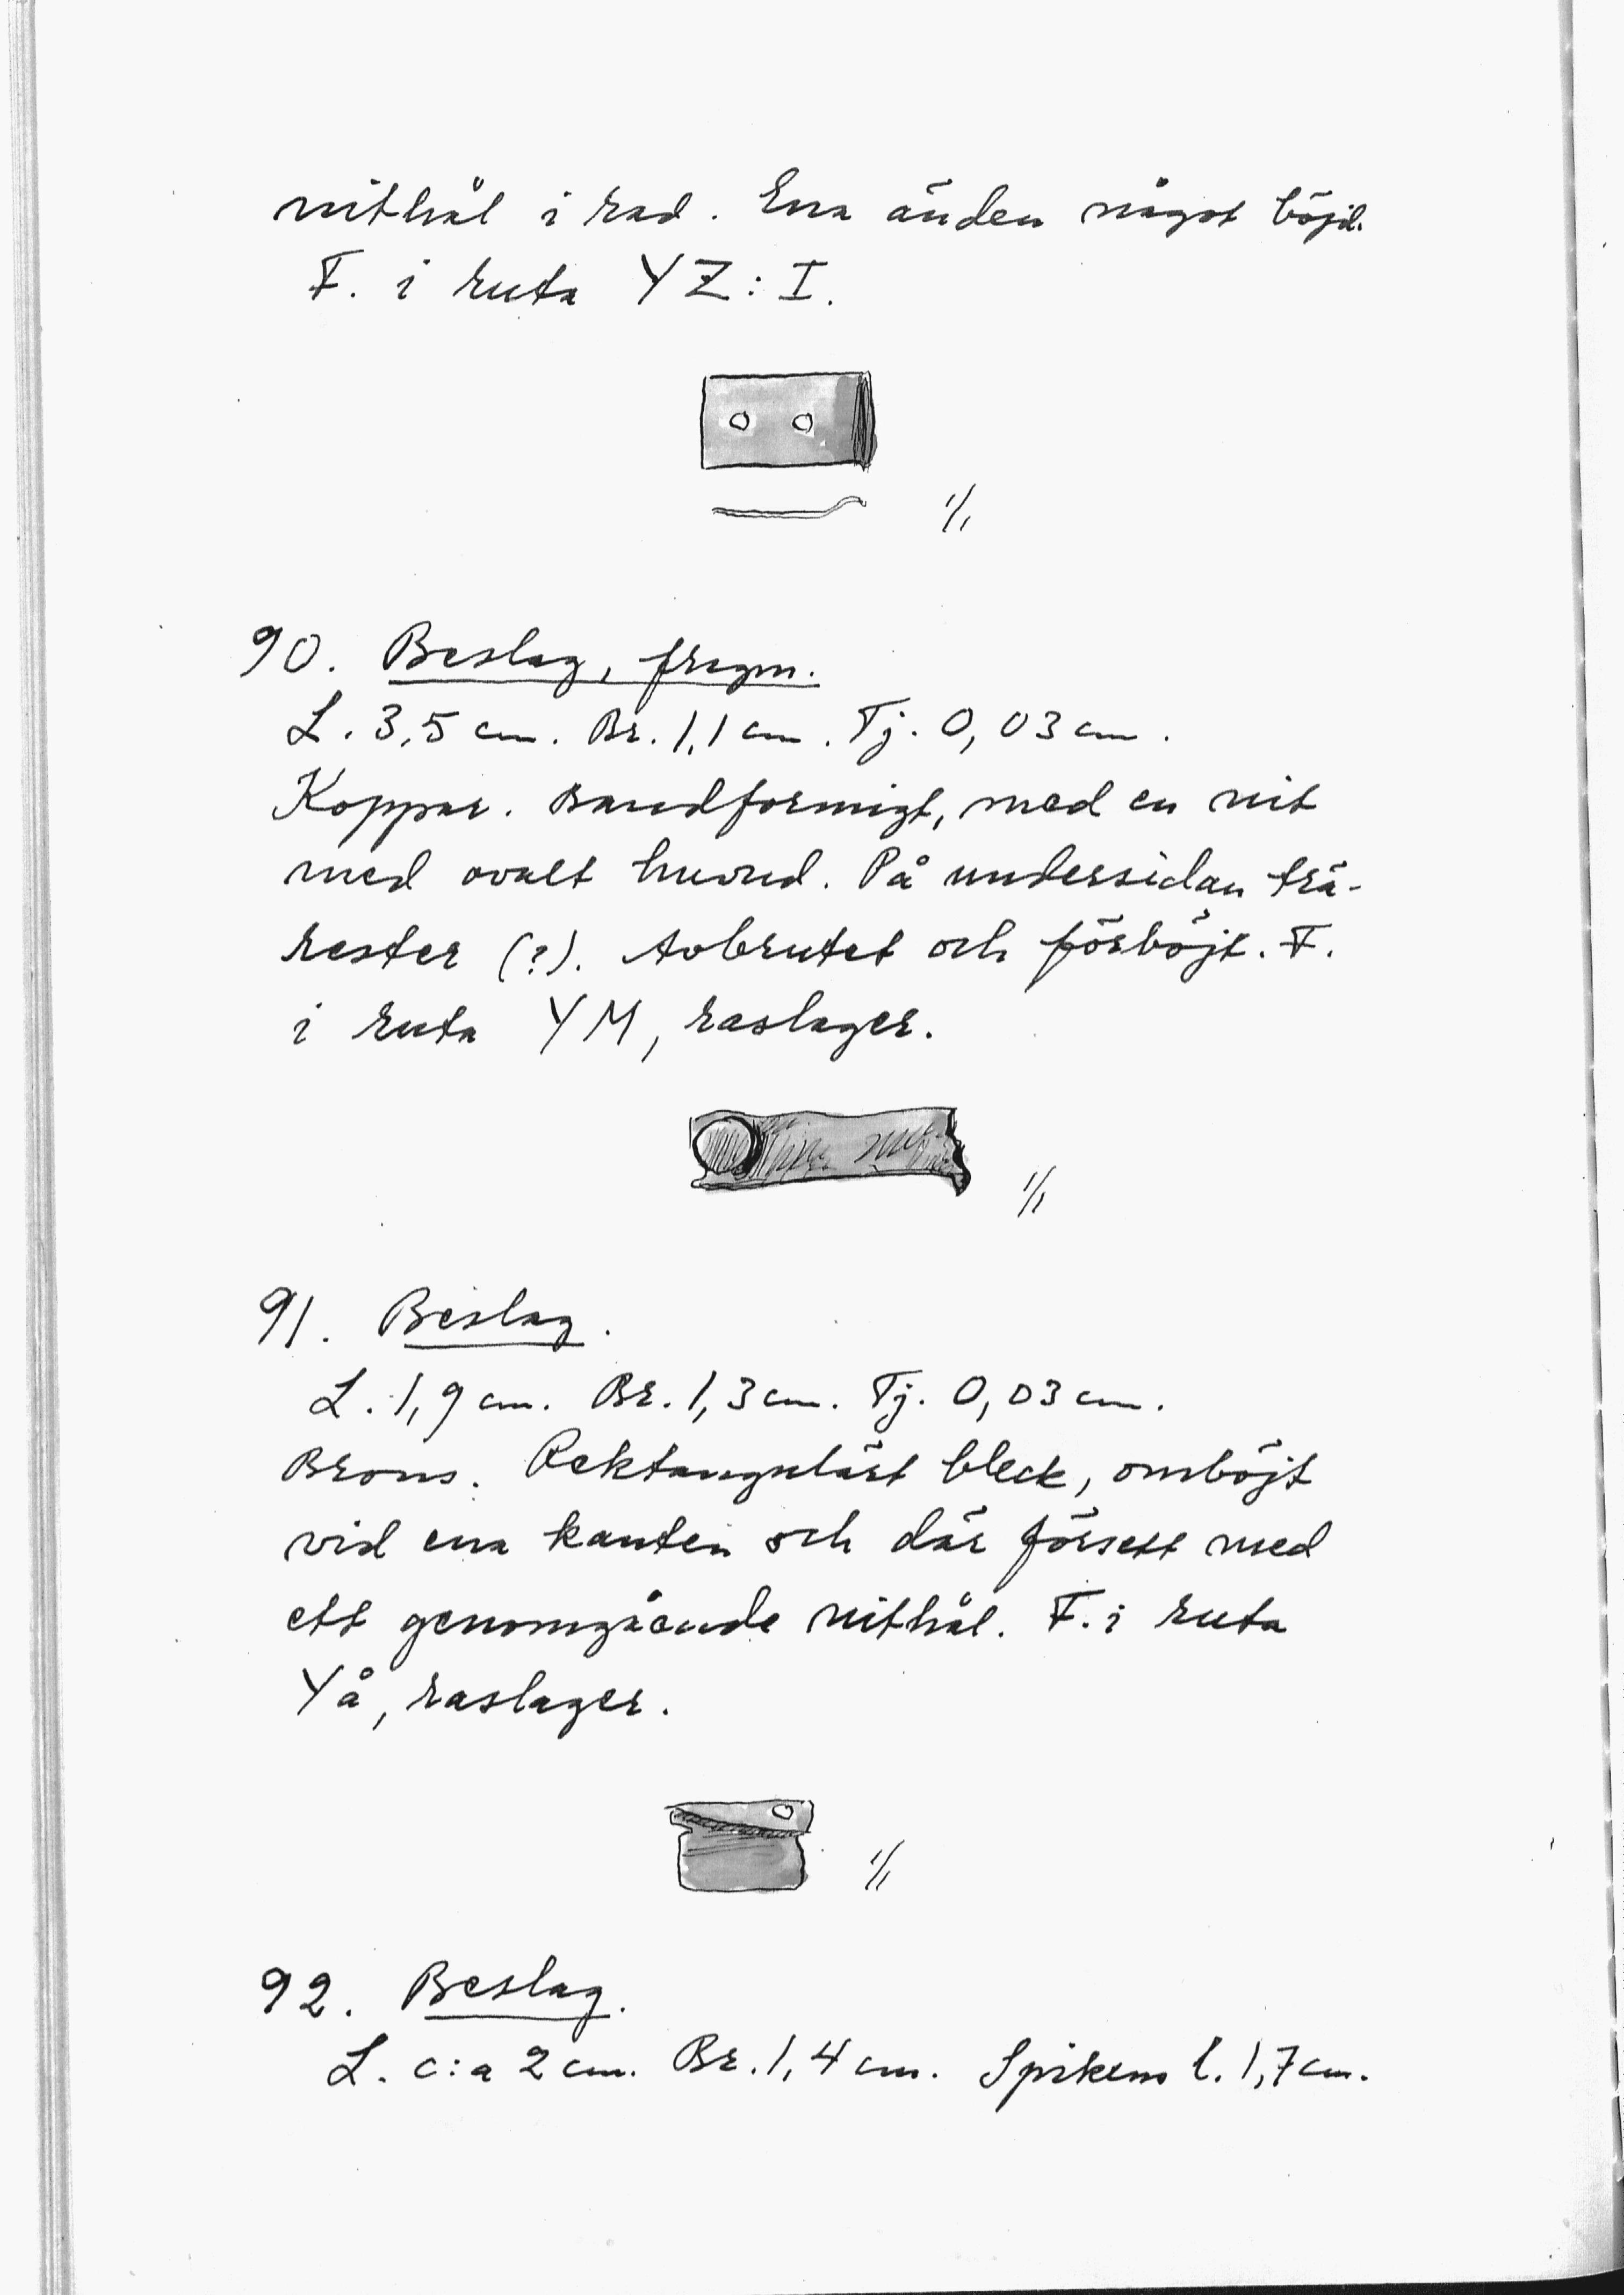 nithål i rad. Ena änden något böjd.
F. i ruta YZ:I.
1/1
90. Beslag, fragm.
L. 3,5 cm. Br. 1,1 cm. Tj. 0,03 cm.
Koppar. Bandformigt, med en nit
med ovalt huvud. På undersidan trä-
rester (?). Avbrutet och förböjt. F.
i ruta YM, raslager.
1/1
91. Beslag.
L. 1,9 cm. Br. 1,3 cm. Tj. 0,03 cm.
Brons. Rektangulärt bleck, omböjt
vid ena kanten och där försett med
ett genomgående nithål. F. i ruta
YÅ, raslager.
1/1
92. Beslag.
L. c:a 2 cm. Br. 1,4 cm. Spikens l. 1,7 cm.